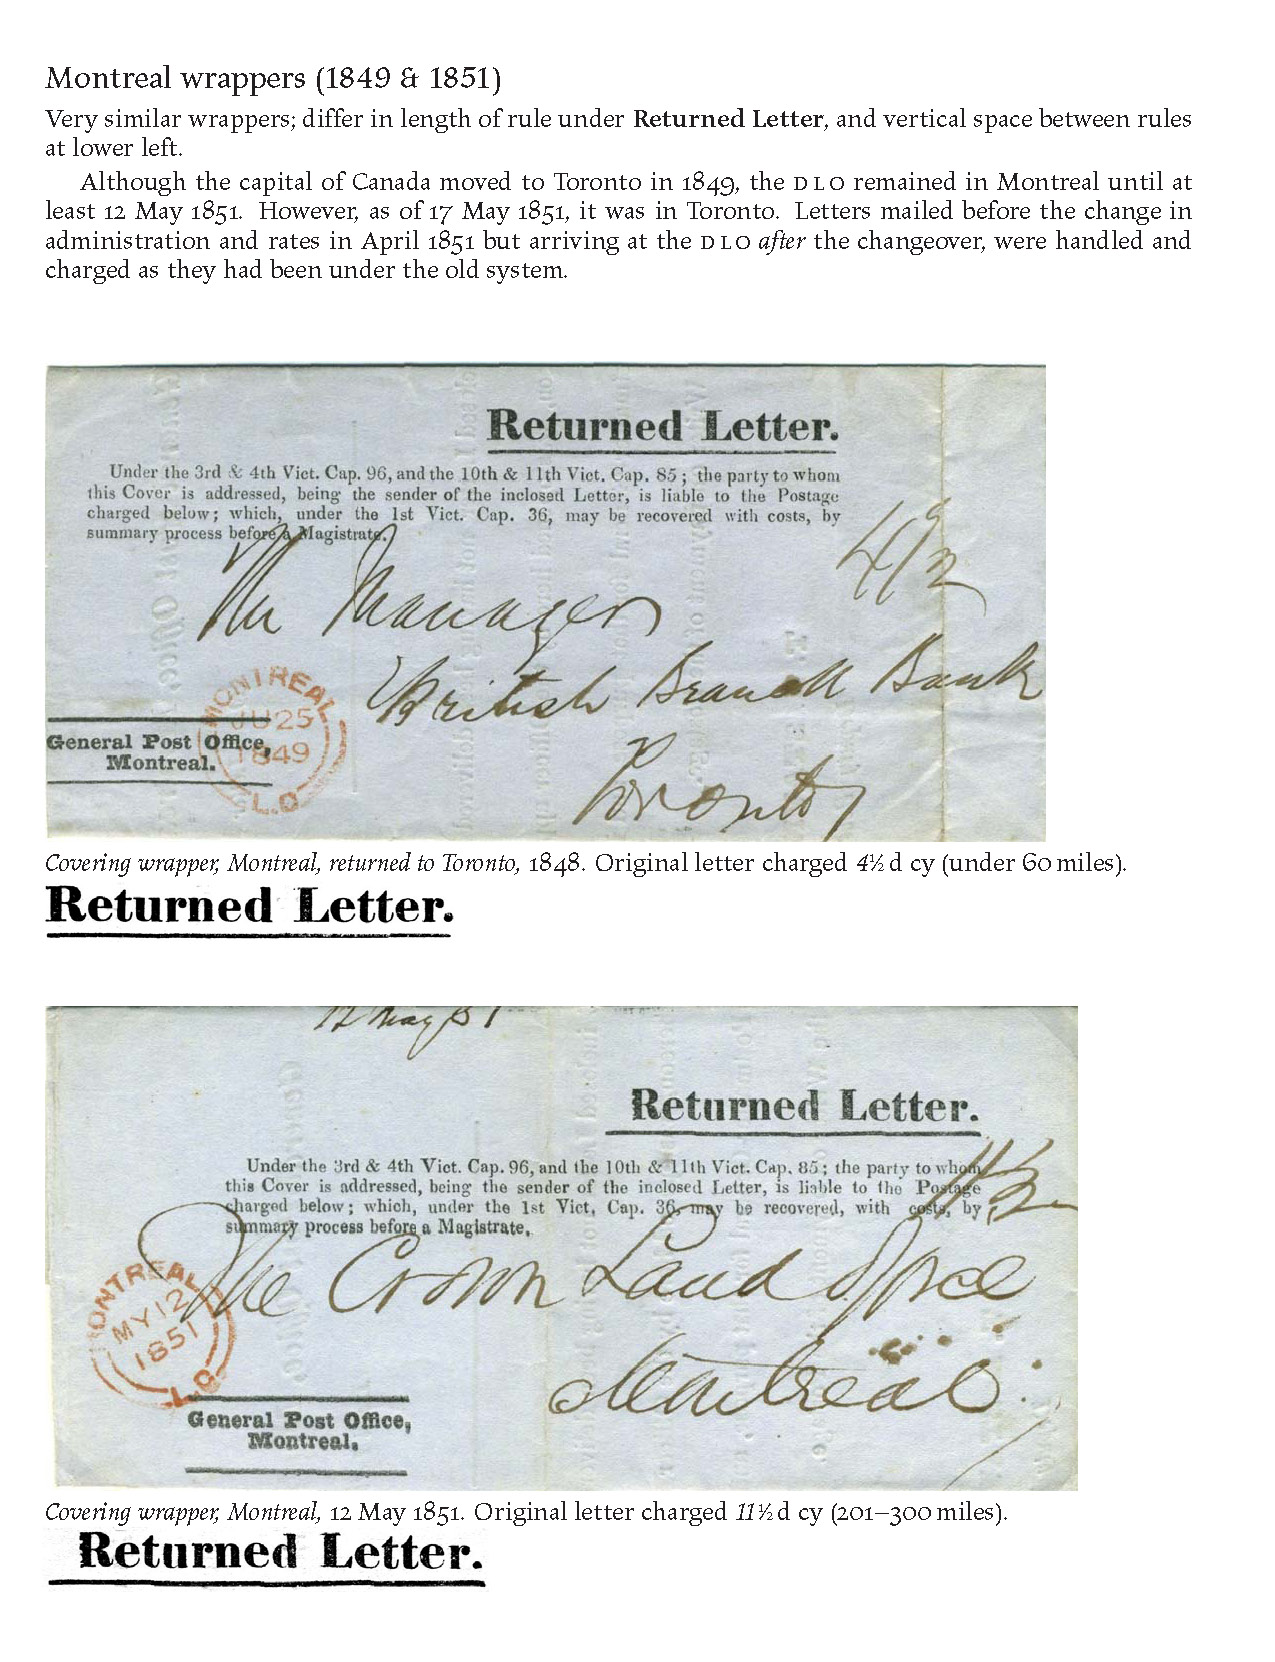 Montreal wrappers (1849 & 1851)
Very similar wrappers; differ in length of rule under Returned Letter, and vertical space between rules
at lower left.
Although the capital of Canada moved to Toronto in 1849, the DLO remained in Montreal until at
least 12 May 1851. However, as of 17 May 1851, it was in Toronto. Letters mailed before the change in
administration and rates in April 1851 but arriving at the DLO after the changeover, were handled and
charged as they had been under the old system.
Returned Letter.
Under the 3rd & 4th Vict. Cap. 96, and the 10th & 11th Vict. Cap. 85; the party to whom
this Cover is addressed, being the sender of the inclosed Letter, is liable to the Postage
charged below; which, under the 1st Vict. Cap. 36, may be recovered with costs, by
summary process before a Magistrate.
4½
The Manager
British Branch Bank
Toronto
MONTREAL
JU 25
1849
L.O
General Post Office,
Montreal.
Covering wrapper, Montreal, returned to Toronto, 1848. Original letter charged 4½ d cy (under 60 miles).
Returned Letter.
12 May 51
Returned Letter.
Under the 3rd & 4th Vict. Cap. 96, and the 10th & 11th Vict. Cap. 85; the party to whom
this Cover is addressed, being the sender of the inclosed Letter, is liable to the Postage
charged below; which, under the 1st Vict. Cap. 36, may be recovered, with costs, by
summary process before a Magistrate.
11½
The Crown Land Office
Montreal
MONTREAL
MY 12
1851
L.O
General Post Office,
Montreal.
Covering wrapper, Montreal, 12 May 1851. Original letter charged 11½ d cy (201–300 miles).
Returned Letter.